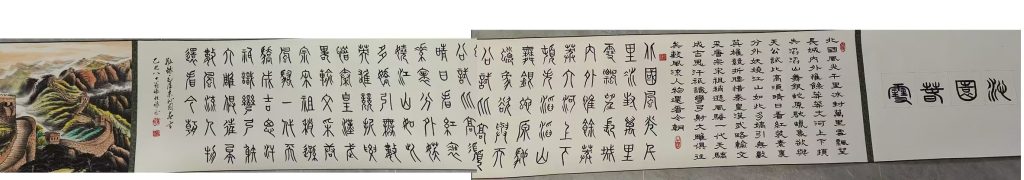 沁園春雪
北國風光千里冰封萬里雪飄望
長城內外惟餘莽莽大河上下頓
失滔滔山舞銀蛇原馳蠟象欲與
天公試比高須晴日看紅裝素裹
分外妖嬈江山如此多嬌引無數
英雄競折腰惜秦皇漢武略輸文
采唐宗宋祖稍遜風騷一代天驕
成吉思汗祇識彎弓射大雕俱往
矣數風流人物還看今朝
北國風光千
里冰封萬里
雪飄望長城
內外惟餘莽
莽大河上下
頓失滔滔山
舞銀蛇原馳
蠟象欲與天
公試比高須
公試比高須
晴日看紅裝
素裹分外妖
嬈江山如此
多嬌引無數
英雄競折腰
惜秦皇漢武
略輸文采唐
宗宋祖稍遜
風騷一代天
驕成吉思汗
祇識彎弓射
大雕俱往矣
數風流人物
還看今朝